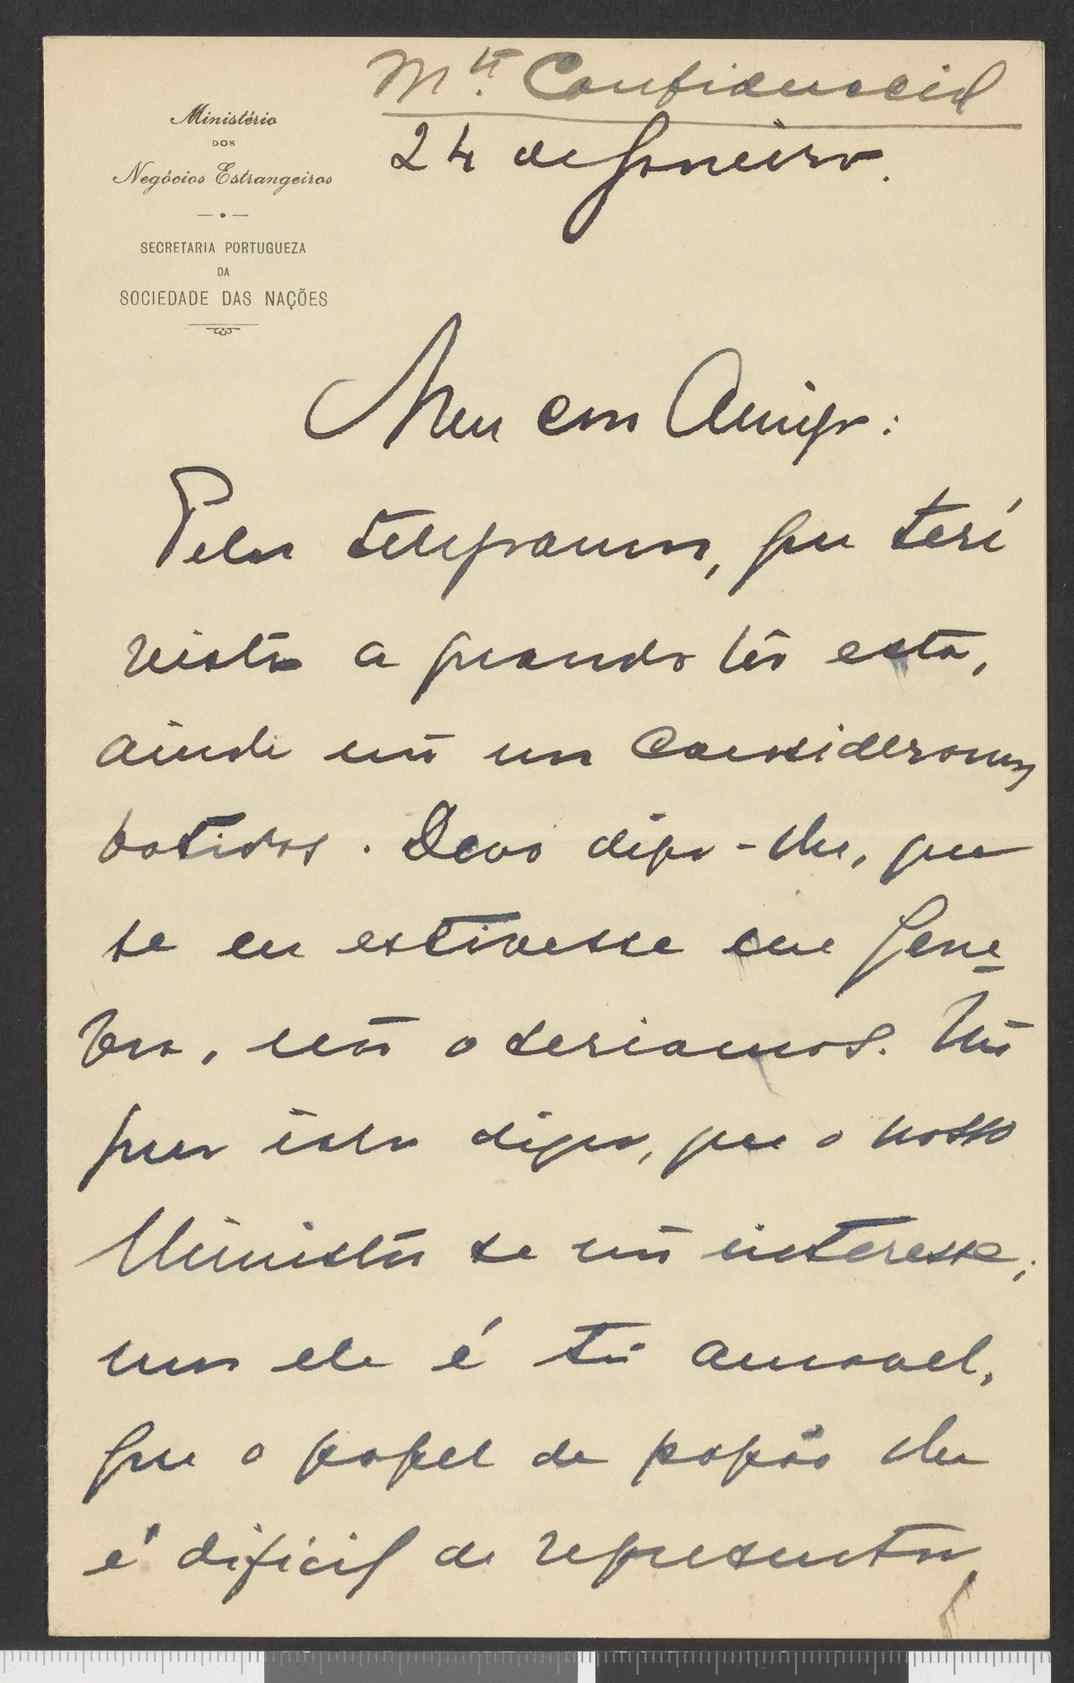 Mto. Confidencial
24 de Janeiro.
Ministério
DOS
Negócios Estrangeiros
SECRETARIA PORTUGUEZA
DA
SOCIEDADE DAS NAÇÕES
Meu caro Amigo:
Pelo telegrama, que terá
visto a quando lêr esta,
ainda não nos consideramos
batidos. Devo dizer-lhe, que
se eu estivesse em Gene-
bra, não o seriamos. Não
quer isto dizer, que o nosso
Ministro se não interesse;
mas ele é tão amavel,
que o papel de papão lhe
é dificil de representar,